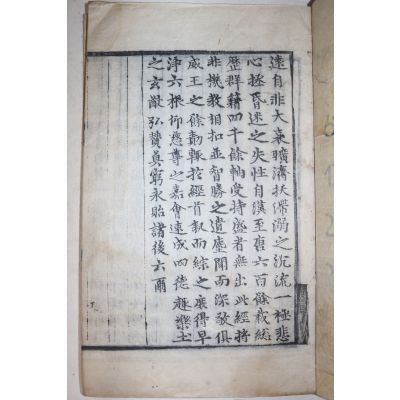 遠自非大哀曠濟拔滯溺之沉流一極悲
心拯昏迷之失性自漢至唐六百餘載総
歷群籍四千餘軸受持盛者無出此經將
非機教相扣並智勝之遺塵聞而深敬俱
威王之餘勳輒於經首叙而綜之庶得早
淨六根仰慈尊之嘉會速成四德趣樂土
之玄猷弘贊莫窮永貽諸後云爾